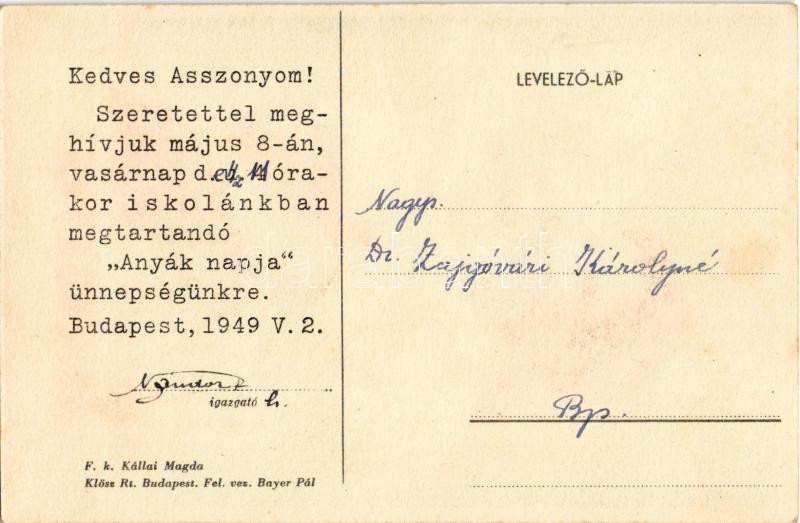 Kedves Asszonyom!
Szeretettel meg-
hívjuk május 8-án,
vasárnap d.e. 1/2 11 óra-
kor iskolánkban
megtartandó
„Anyák napja“
ünnepségünkre.
Budapest, 1949 V. 2.
igazgató h.
F. k. Kállai Magda
Klösz Rt. Budapest. Fel. vez. Bayer Pál
LEVELEZŐ-LAP
Nagys.
Dr. Zajgóvári Károlyné
Bp.